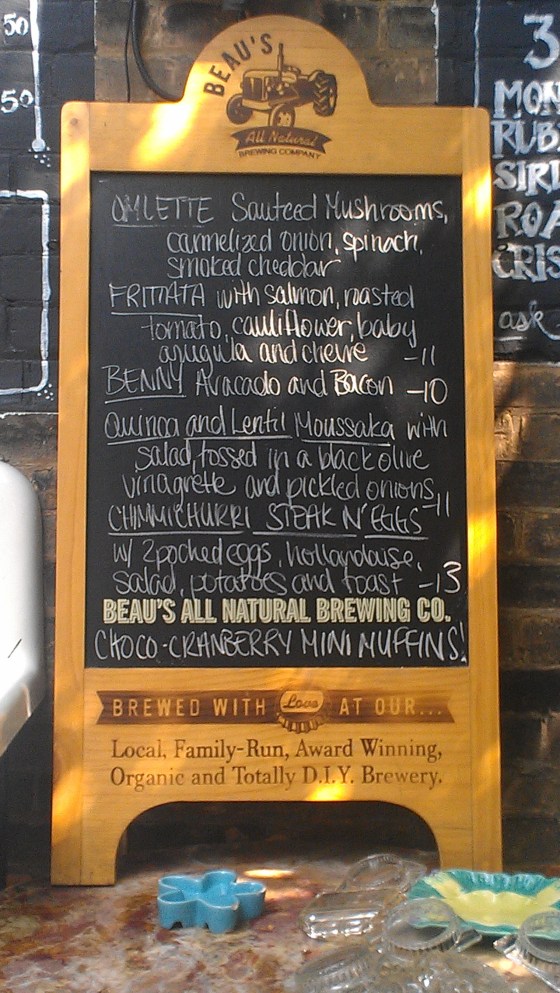 50
50
BEAU'S
All Natural
BREWING COMPANY
OMLETTE Sauteed Mushrooms,
carmelized onion, spinach,
smoked cheddar
FRITTATA with salmon, roasted
tomato, cauliflower, baby
arugula and chevre -11
BENNY Avacado and Bacon -10
Quinoa and Lentil Moussaka with
salad, tossed in a black olive
vinagrette and pickled onions -11
CHIMMICHURRI STEAK N' EGGS
w/ 2 poched eggs, hollandaise,
salad, potatoes and toast -13
BEAU'S ALL NATURAL BREWING CO.
CHOCO-CRANBERRY MINI MUFFINS!
BREWED WITH Love AT OUR...
Local, Family-Run, Award Winning,
Organic and Totally D.I.Y. Brewery.
3
MON
RUB
SIRL
ROA
CRIS
ask